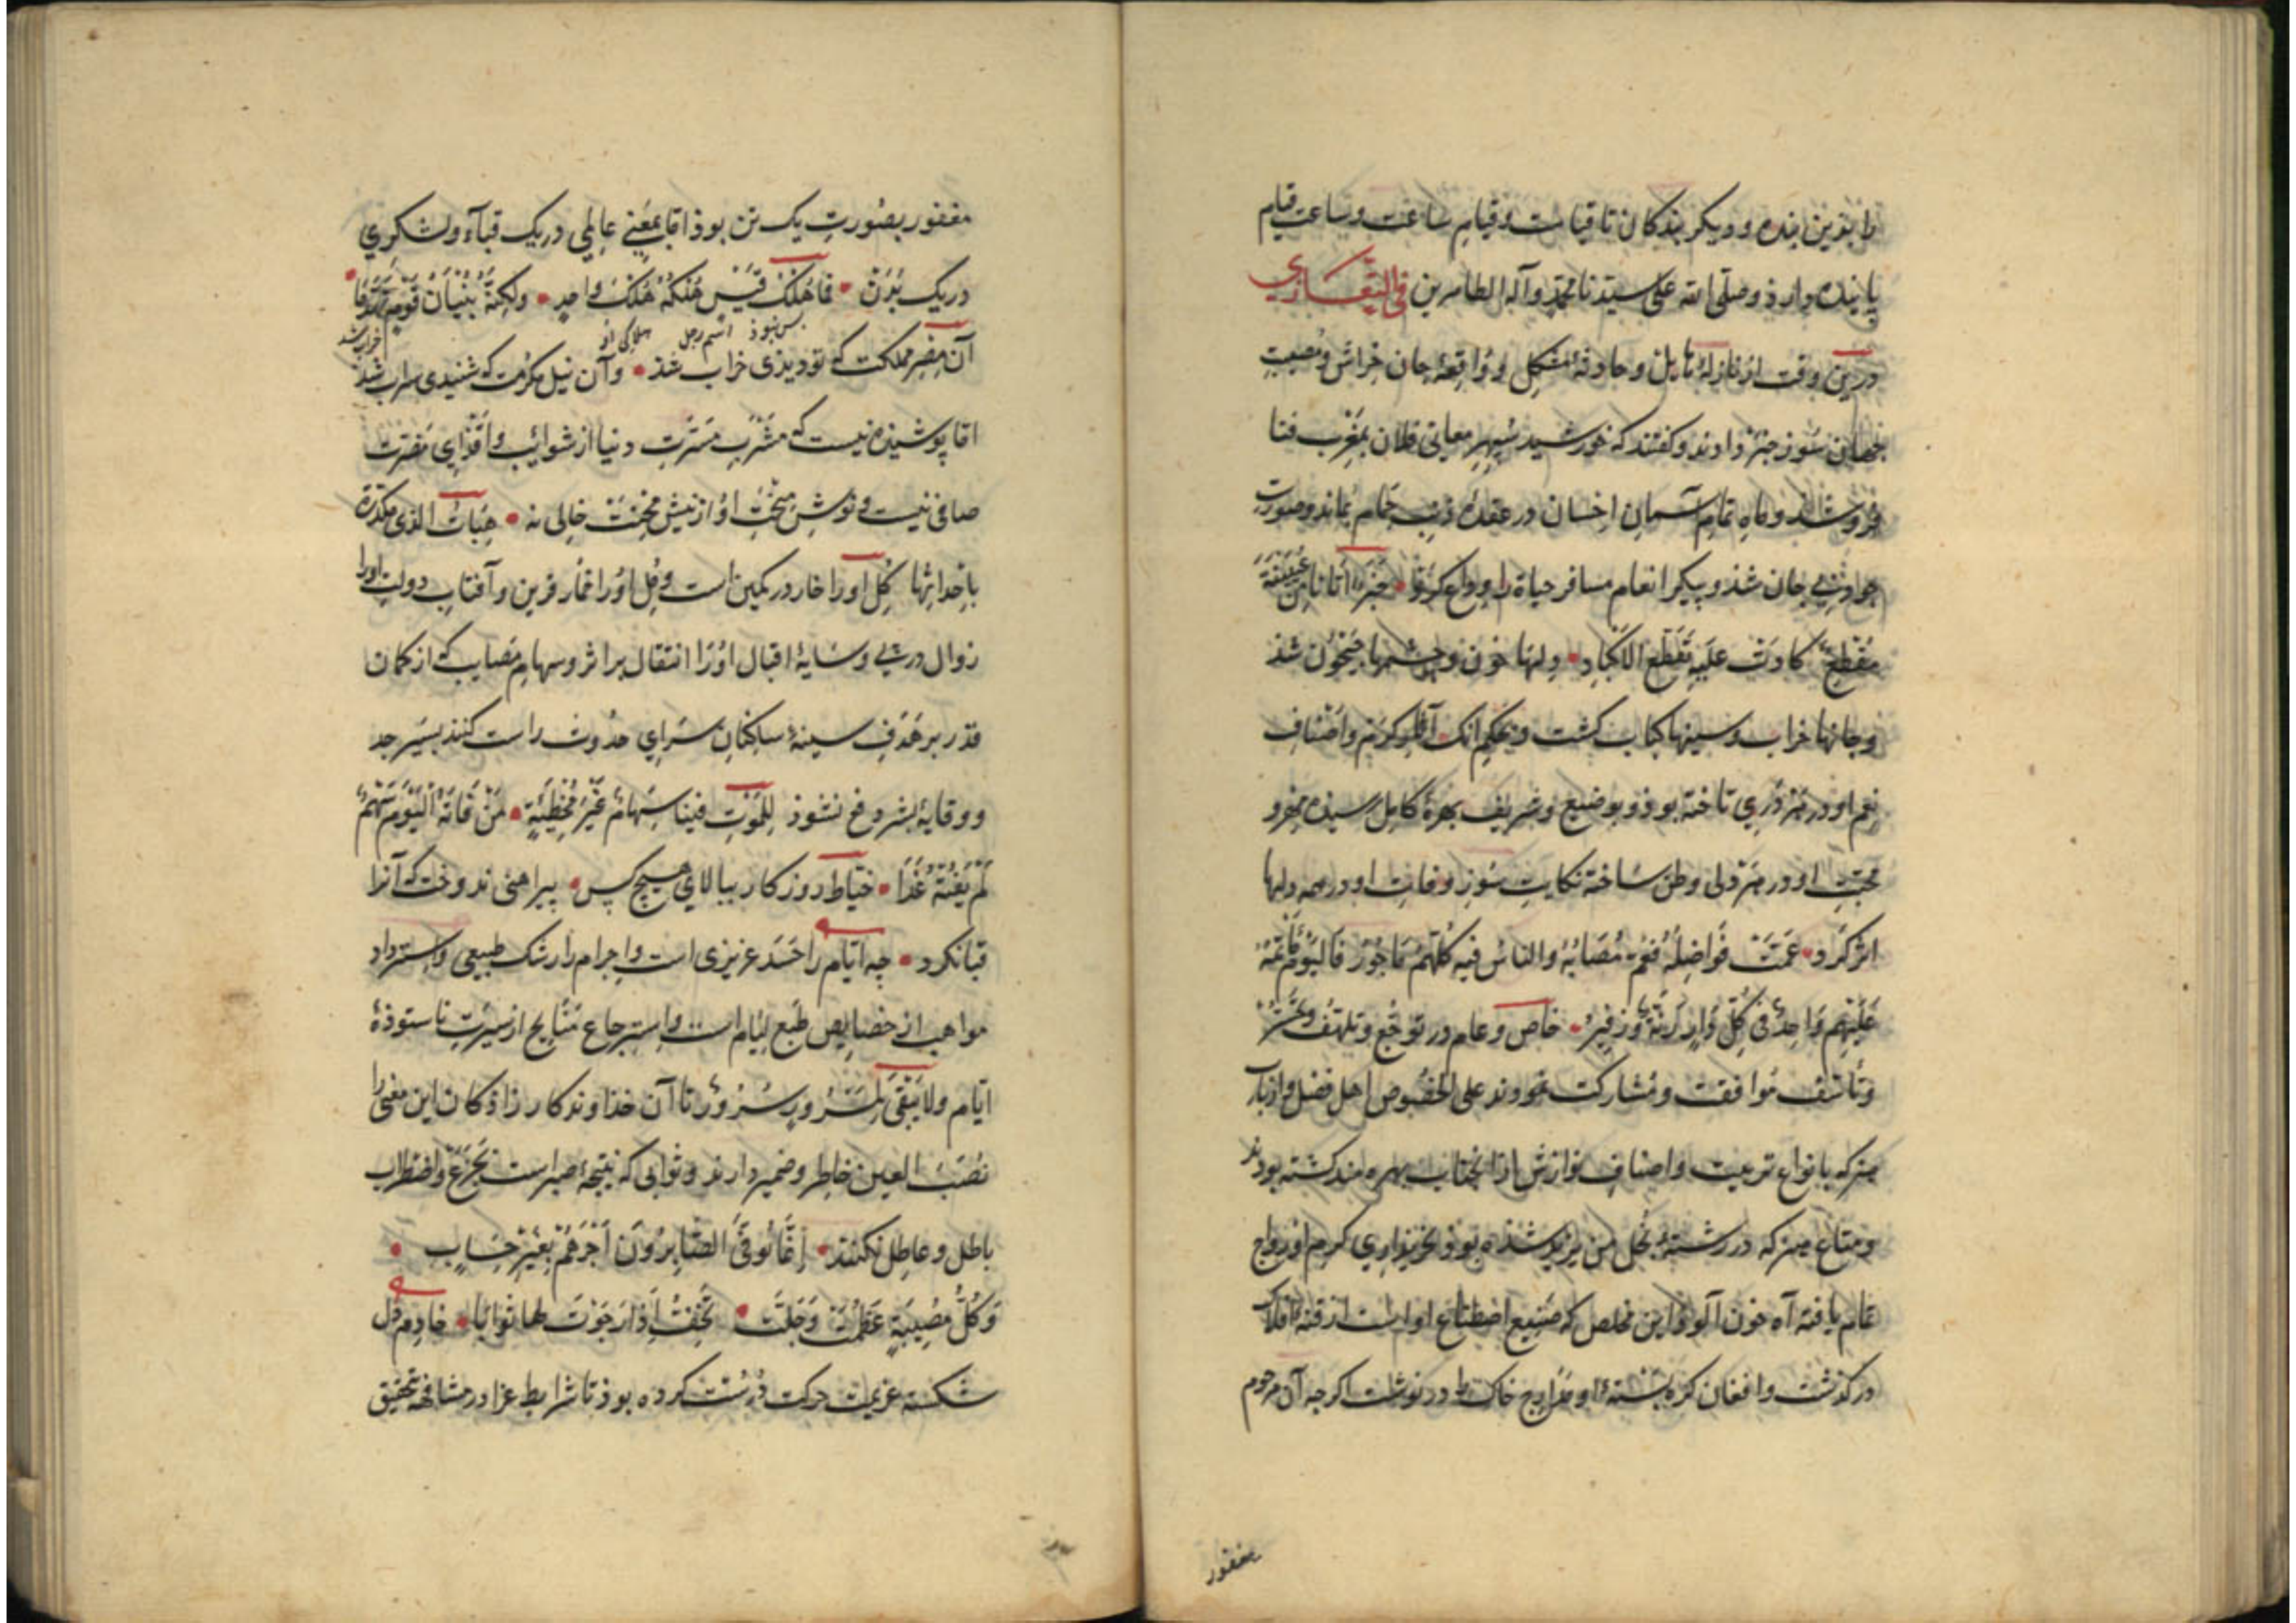 را بذین بنده و دیگر بندگان تا قیامت و قیام ساعت و ساعت قیام
پاینده دارذ و صلّی الله علی سیدنا محمّد و آله الطاهرین فی التّعازی
درین وقت از نازلهٔ هایل و حادثهٔ مشکل و واقعهٔ جان خراش و مصیبت
جهان سوز خبر داوند و کفتند که خورشید سپهر معانی فلان بمغرب فنا
فروشذ و ماه تمام آسمان احسان در عقدهٔ ذنب حمام بماند و صورت
جواد بی جان شذ و پیکر انعام مسافر حیاة را وداع کرد خبر اتانا من عیینة
مقطع کادت علیه تقطّع الاکباد دلها خون و چشمها جیحون شذ
و جانها خراب و سینها کباب کشت و بحکم انک آثار کرم و اصناف
نعم او در هر دری تاخته بوذ و بوضیع و شریف بهرهٔ کامل رسیده و
محبّت او در هر دلی وطن ساخته نکایت سوز وفات او در همه دلها
اثر کرد عمّت فواضله فعمّ مصابه والناس فیه کلّهم ماجور فالیوم مأتمه
علیهم واحد فی کلّ دار رنّة وزفیر خاص و عام در توجّع و تلهّف و تحسّر
و تأسّف موافقت و مشارکت نمودند علی الخصوص اهل فضل و ارباب
هنر که بانواع تربیت و اصناف نوازش از آنجناب بهره مند کشته بودند
و متاع هنر که در رشتهٔ بخل من یزید شذه بوذ بخریداری کرم او رواج
تمام یافته آه خون آلوذ این مخلص که صنیع اصطناع او است از قنهٔ افلاک
درکذشت و افغان کره بستهٔ او مدارج خاک را درنوشت اکرچه آن مرحوم
مغفور
مغفور بصورت یک تن بوذ اما بمعنی عالمی در یک قبآء و لشکری
در یک بدن فما هلک قیس هلکه هلک واحد ولکنّه بنیان قوم تهدّما
بس نبوذ اسم رجل هلاکی او خراب شد
آن مصر مملکت که تو دیذی خراب شذ و آن نیل مکرمت که شنیدی سراب شذ
امّا پوشیذه نیست که مشرب مسرّت دنیا از شوایب و اقذای مضرّت
صافی نیست و نوش منحت او از نیش محنت خالی نه هبات الذی مکدرة
باحداثها کل او را خار در کمین است و مل او را خمار قرین و آفتاب دولت او را
زوال در پی و سایهٔ اقبال او را انتقال بر اثر و سهام مصایب که از کمان
قدر بر هدف سینهٔ ساکنان سرای حدوث راست کنند بسپر جد
و وقایهٔ بشر دفع نشوذ للموت فینا سهام غیر مخطئة من فاته الیوم سهم
لم یفته غدا خیّاط روزکار ببالای هیچ کس پیراهنی ندوخت که آنرا
قبا نکرد چه ایّام را حسد غریزی است و اجرام را رشک طبیعی و استرداد
مواهب از خصایص طبع لئام است و استرجاع منایح از سیرت ناستوذهٔ
ایّام ولا یبقی لمسرور سرور تا آن خذاوند کار زاذکان این معنی را
نصب العین خاطر و ضمیر دارند و ثوابی که نتیجهٔ صبر است بجزع و اضطراب
باطل و عاطل نکنند انّما یوفّی الصّابرون اجرهم بغیر حساب
وکلّ مصیبة عظمت وجلّت تخفّ اذا رجوت لها ثوابا خادم دل
شکسته عزیمت حرکت درست کرده بوذ تا شرایط عزا در مشافهه تحقیق